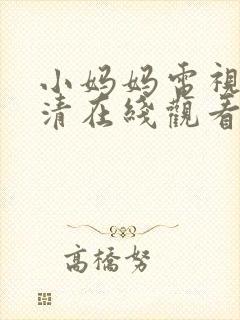 小妈妈电視
清在綫觀看
高橋努